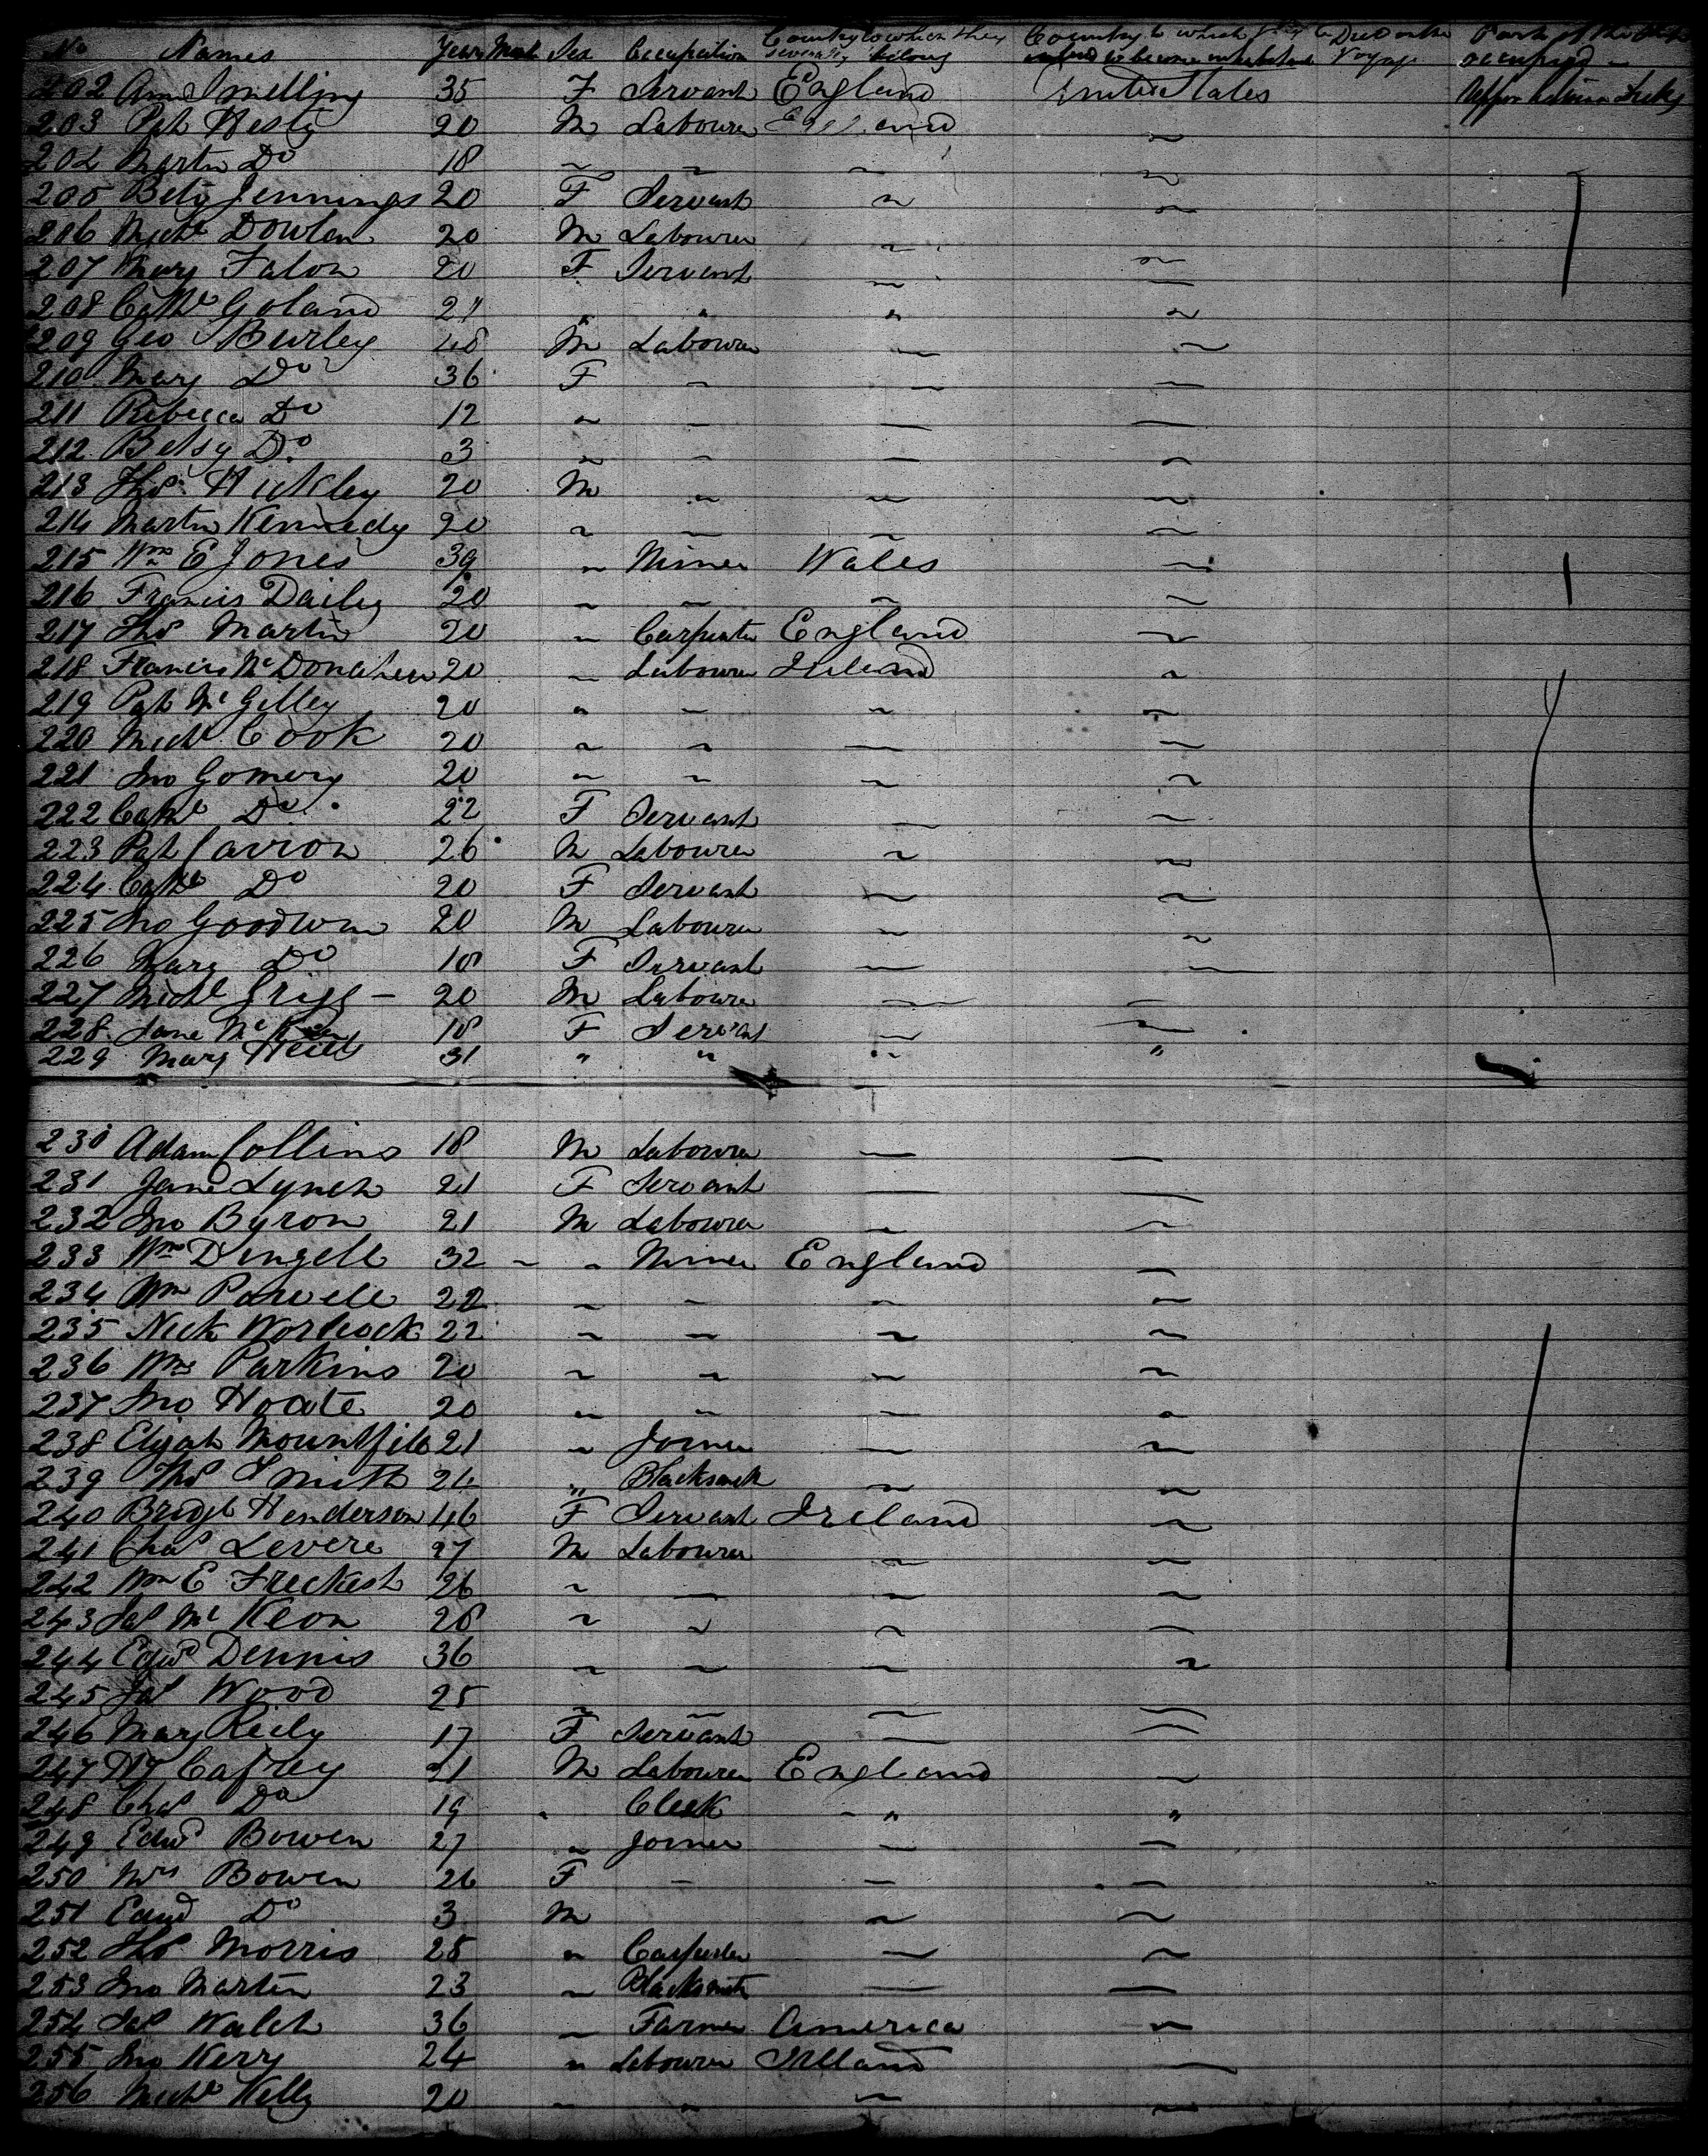 No Names Years Sex Occupation Country to which they severally belong Country to which they intend to become inhabitants Died on the Voyage Part of the occupied
202 Ann Smelling 35 F Servant England United States Upper between Decks
203 Pat Hesty 20 M Labourer England ~
204 Martin Do 18 ~ ~ ~ ~
205 Bety Jennings 20 F Servant ~ ~
206 Michl Dowlan 20 M Labourer ~ ~
207 Mary Falon 20 F Servant ~ ~
208 Cathe Goland 21 " " " ~
209 Geo Burley 48 M Labourer ~ ~
210 Mary Do 36 F ~ ~ ~
211 Rebecca Do 12 ~ ~ ~ ~
212 Betsy Do 3 ~ ~ ~ ~
213 Thos Hickley 20 M ~ ~ ~
214 Martin Kennedy 20 ~ ~ ~ ~
215 Wm E Jones 39 ~ Miner Wales ~
216 Francis Dailey 20 ~ ~ ~ ~
217 Thos Martin 20 ~ Carpenter England ~
218 Francis McDonahew 20 ~ Labourer Ireland ~
219 Pat McGilley 20 ~ ~ ~ ~
220 Michl Cook 20 ~ ~ ~ ~
221 Jno Gomery 20 ~ ~ ~ ~
222 Cathe Do 22 F Servant ~ ~
223 Pat Carron 26 M Labourer ~ ~
224 Cathe Do 20 F Servant ~ ~
225 Jno Goodwin 20 M Labourer ~ ~
226 Mary Do 18 F Servant ~ ~
227 Michl Grigg 20 M Labourer ~ ~
228 Jane Mc 18 F Servant ~ ~
229 Mary 31 " " " "
230 Adam Collins 18 M Labourer ~ ~
231 Jane Lynch 21 F Servant ~ ~
232 Jno Byron 21 M Labourer ~ ~
233 Wm Dingell 32 ~ ~ Miner England ~
234 Wm Powell 22 ~ ~ ~ ~
235 Nick Worlcock 22 ~ ~ ~ ~
236 Wm Parkins 20 ~ ~ ~ ~
237 Jno Hoate 20 ~ ~ ~ ~
238 Elijah Mountfile 21 ~ Joiner ~ ~
239 Thos Smith 24 " Blacksmith ~ ~
240 Bridgt Henderson 46 F Servant Ireland ~
241 Chas Levere 27 M Labourer ~ ~
242 Wm E Freckest 26 ~ ~ ~ ~
243 Jas McKeon 28 ~ ~ ~ ~
244 Edwd Dennis 36 ~ ~ ~ ~
245 Jas Wood 25 ~ ~ ~ ~
246 Mary Riely 17 F Servant ~ ~
247 Hy Cafrey 21 M Labourer England ~
248 Chas Do 19 " Clerk " "
249 Edwd Bowen 27 ~ Joiner ~ ~
250 Mrs Bowen 26 F ~ ~ ~
251 Edwd Do 3 M ~ ~
252 Thos Morris 28 ~ Carpenter ~ ~
253 Jno Martin 23 ~ Blacksmith ~ ~
254 Jas Walsh 36 ~ Farmer America ~
255 Jno Kerry 24 ~ Labourer Ireland ~
256 Michl Kelly 20 ~ ~ ~ ~